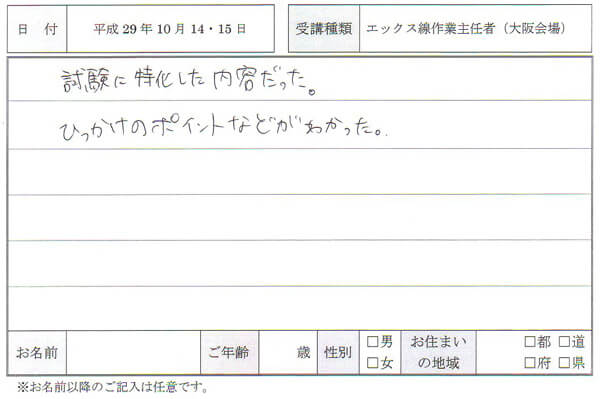 日 付 平成29年10月14・15日 受講種類 エックス線作業主任者（大阪会場）
試験に特化した内容だった。
ひっかけのポイントなどがわかった。
お名前 ご年齢 歳 性別 □男 □女 お住まいの地域 □都 □道 □府 □県
※お名前以降のご記入は任意です。